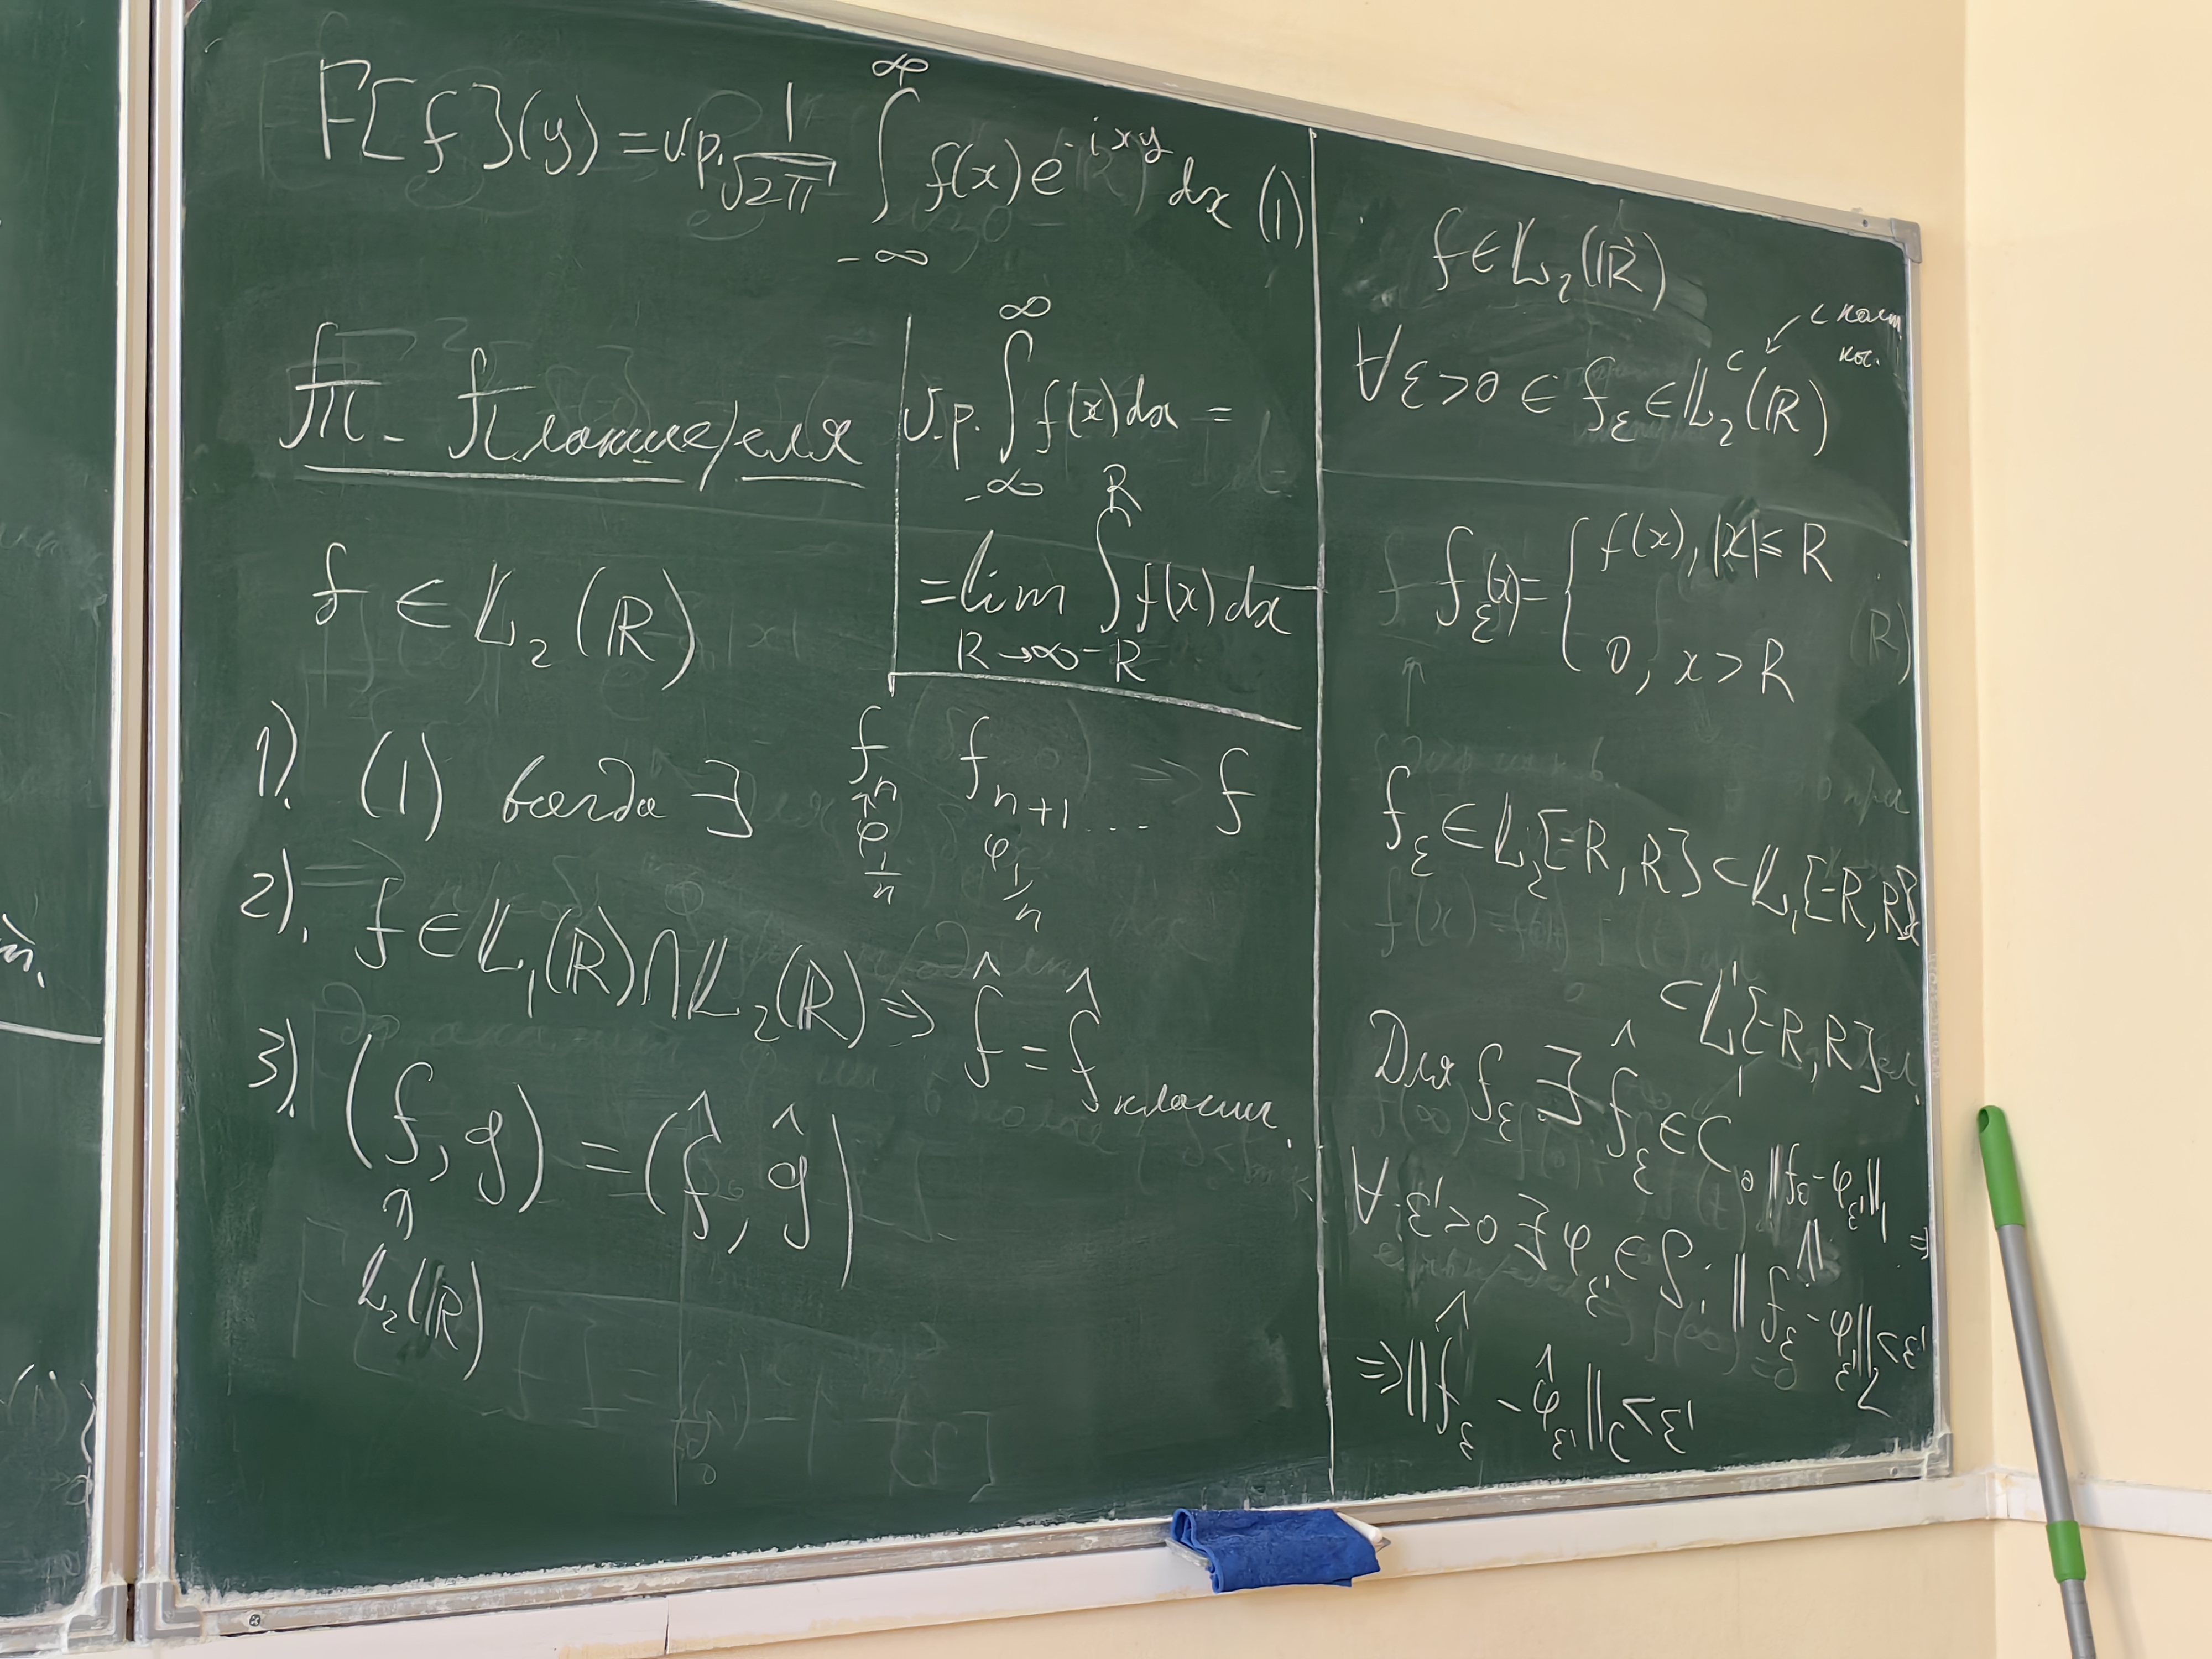 F[f](y) = v.p. 1/√2π ∫_{-∞}^{∞} f(x) e^{-ixy} dx (1)
Т. Планшереля
v.p. ∫_{-∞}^{∞} f(x) dx =
= lim_{R→∞} ∫_{-R}^{R} f(x) dx
f ∈ L₂(ℝ)
1). (1) всегда ∃
f_n f_{n+1} ... ⇒ f
φ_{1/n} φ_{1/n}
2). f ∈ L₁(ℝ) ∩ L₂(ℝ) ⇒ f̂ = f̂ классич.
3). (f, g) = (f̂, ĝ)
L₂(ℝ)
f ∈ L₂(ℝ)
∀ε>0 ∈ f_ε ∈ L₂ᶜ(ℝ)
f_ε(x) = { f(x), |x| ≤ R
0, x > R
f_ε ∈ L₂[-R, R] ⊂ L₁[-R, R]
⊂ L₁[-R, R]
Для f_ε ∃ f̂_ε ∈ C₀
‖f_ε - φ_ε'‖₁
∀ ε'>0 ∃ φ_ε' ∈ S: ‖f_ε - φ_ε'‖₂ < ε' ⇒
⇒ ‖f̂_ε - φ̂_ε'‖_C < ε'